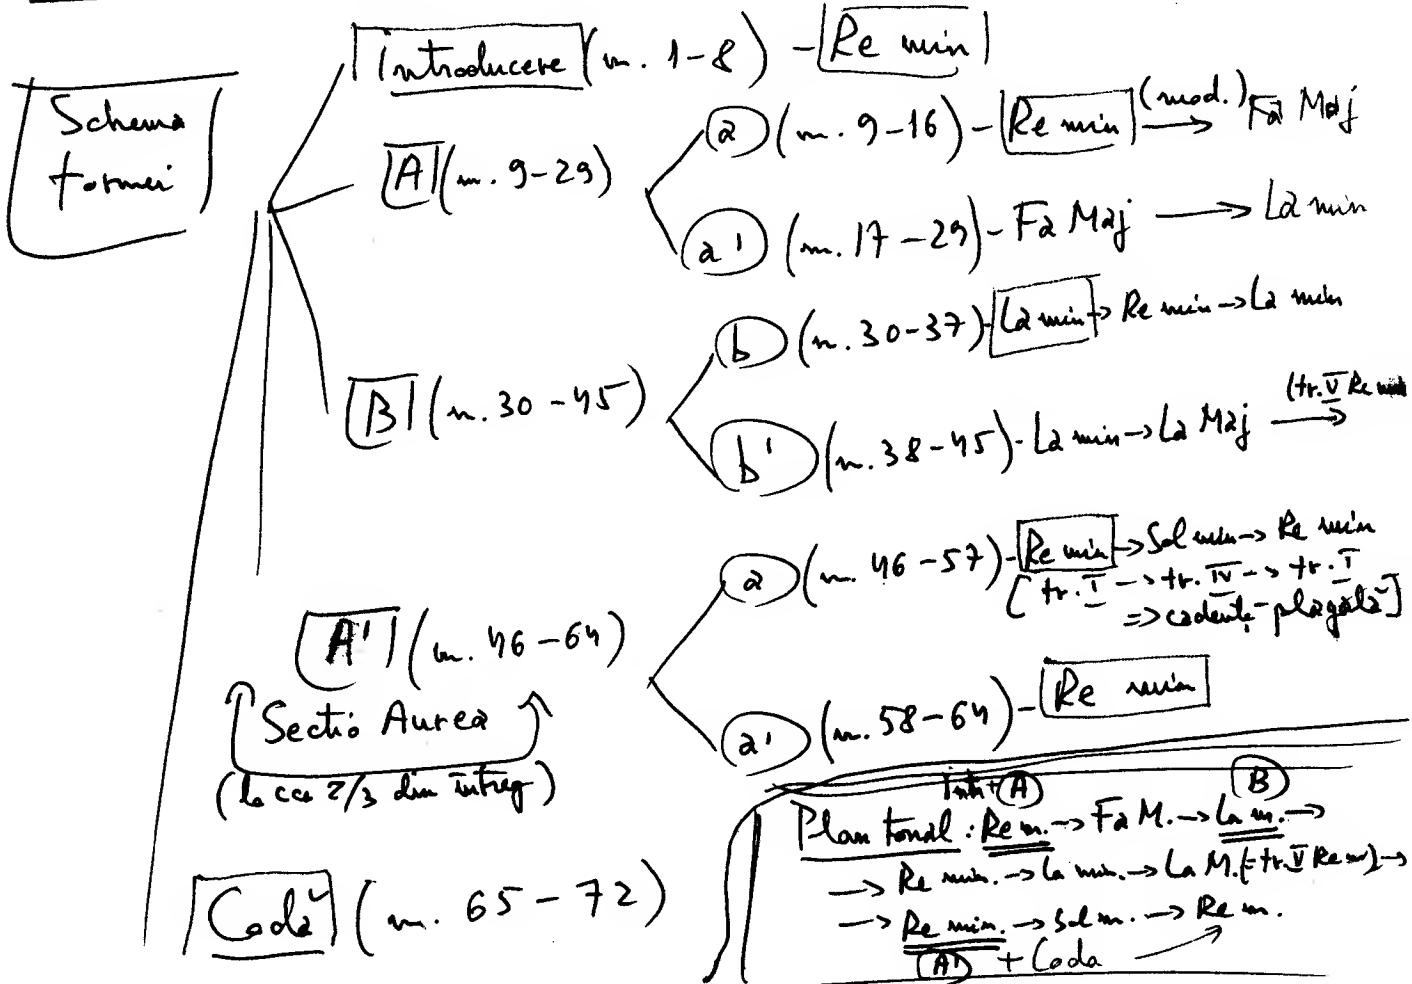 Schema
formei
Introducere (m. 1-8) - Re min
A (m. 9-29)
a (m. 9-16) - Re min (mod.) → Fa Maj
a' (m. 17-29) - Fa Maj → La min
B (m. 30-45)
b (m. 30-37) - La min → Re min → La min
b' (m. 38-45) - La min → La Maj (tr. V Re min →
A' (m. 46-64)
Sectio Aurea
(la cca 2/3 din întreg)
a (m. 46-57) - Re min → Sol min → Re min
[tr. I → tr. IV → tr. I
=> cadență plagală]
a' (m. 58-64) - Re min
Codă (m. 65-72)
Intr + A B
Plan tonal: Re m. → Fa M. → La m. →
→ Re min. → La min. → La M. (= tr. V Re m) →
→ Re min. → Sol m. → Re m.
A' + Coda